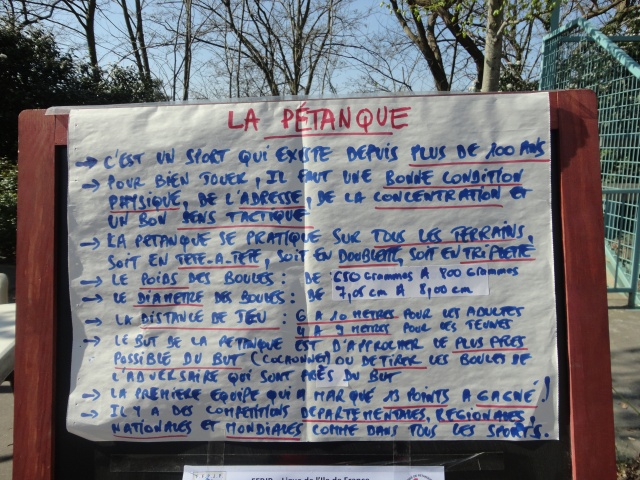 LA PÉTANQUE
→ C'EST UN SPORT QUI EXISTE DEPUIS PLUS DE 100 ANS
→ POUR BIEN JOUER, IL FAUT UNE BONNE CONDITION
PHYSIQUE, DE L'ADRESSE, DE LA CONCENTRATION ET
UN BON SENS TACTIQUE
→ LA PETANQUE SE PRATIQUE SUR TOUS LES TERRAINS,
SOIT EN TETE-A-TETE, SOIT EN DOUBLETTE, SOIT EN TRIPLETTE
→ LE POIDS DES BOULES : DE 650 Grammes A 800 Grammes
→ LE DIAMETRE DES BOULES : DE 7,05 cm A 8,00 cm
→ LA DISTANCE DE JEU : 6 A 10 METRES POUR LES ADULTES
4 A 9 METRES POUR LES JEUNES
→ LE BUT DE LA PETANQUE EST D'APPROCHER LE PLUS PRES
POSSIBLE DU BUT (COCHONNET) OU DE TIRER LES BOULES DE
L'ADVERSAIRE QUI SONT PRÈS DU BUT
→ LA PREMIERE EQUIPE QUI A MARQUE 13 POINTS A GAGNÉ !
→ IL Y A DES COMPETITIONS DEPARTEMENTALES, REGIONALES
NATIONALES ET MONDIALES COMME DANS TOUS LES SPORTS.
Ligue de l'Ile de France